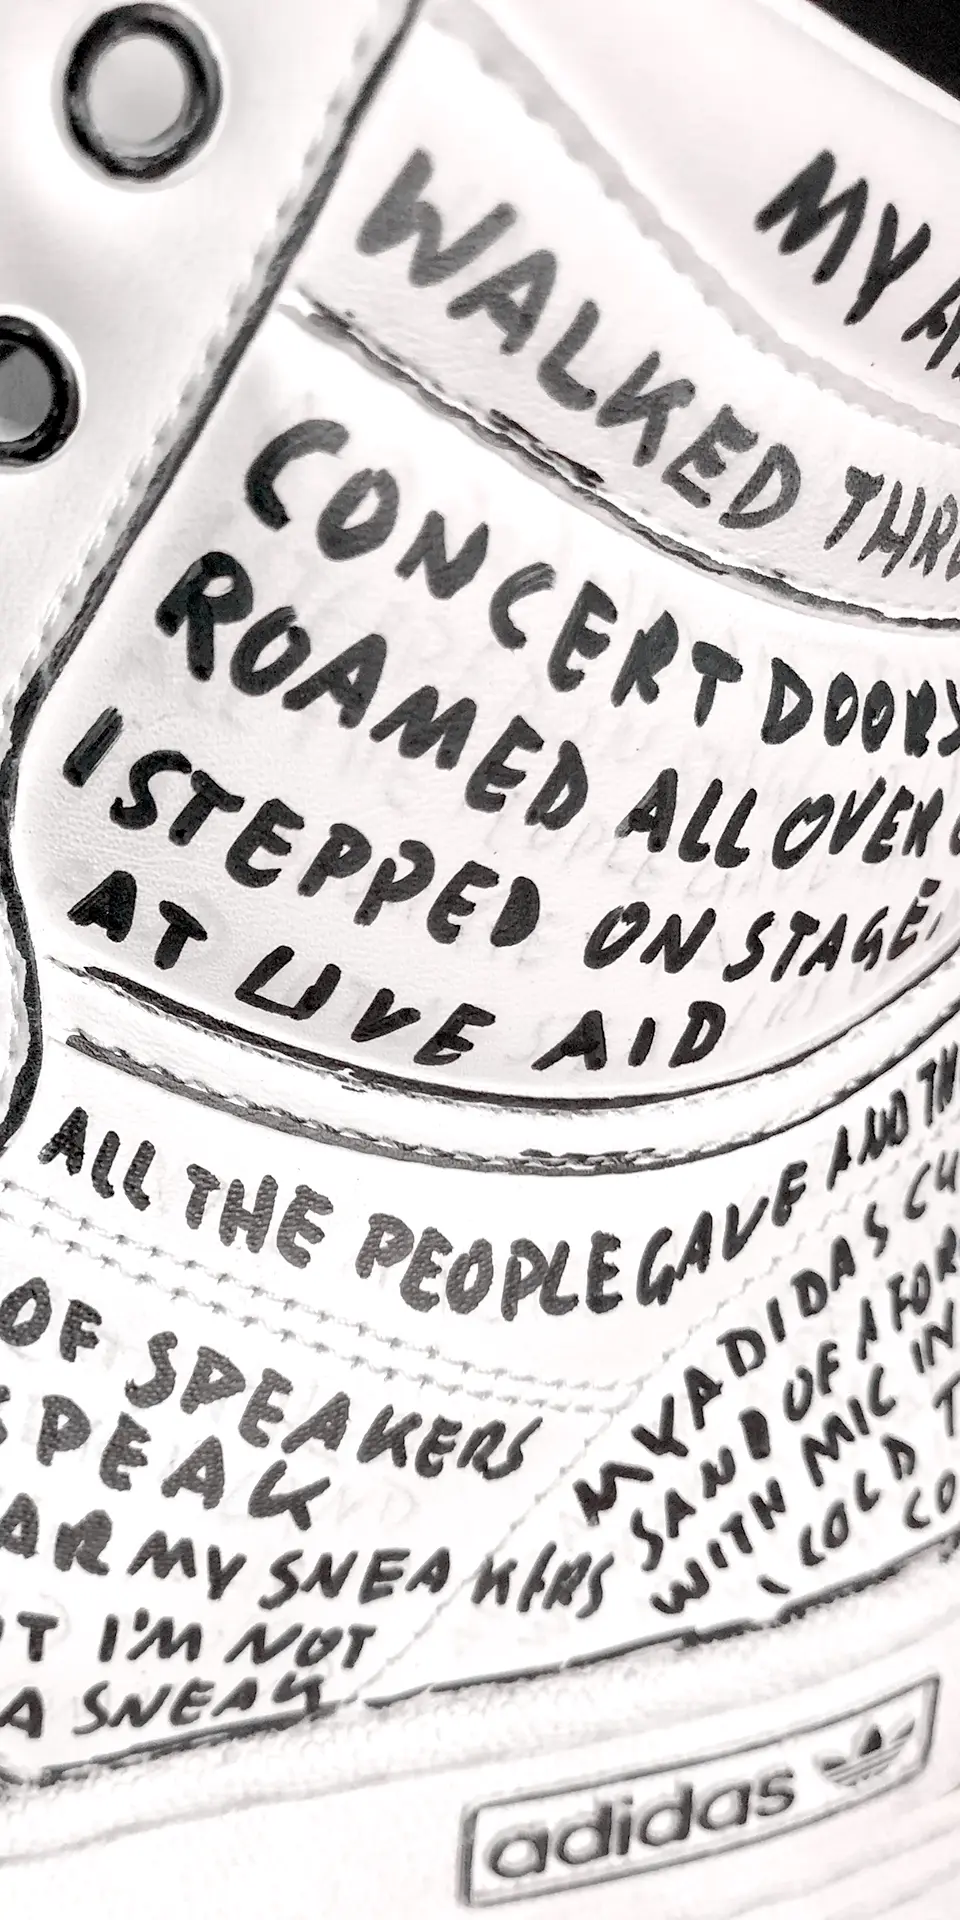 MY A
WALKED THRU
CONCERT DOORS
ROAMED ALL OVER C
I STEPPED ON STAGE,
AT LIVE AID
ALL THE PEOPLE GAVE AND TH
OF SPEAKERS
SPEAK
AR MY SNEAKERS
T I'M NOT
A SNEAK
MY ADIDAS CU
SAND OF A FOR
WITH MIC IN
I COLD T
CO
adidas